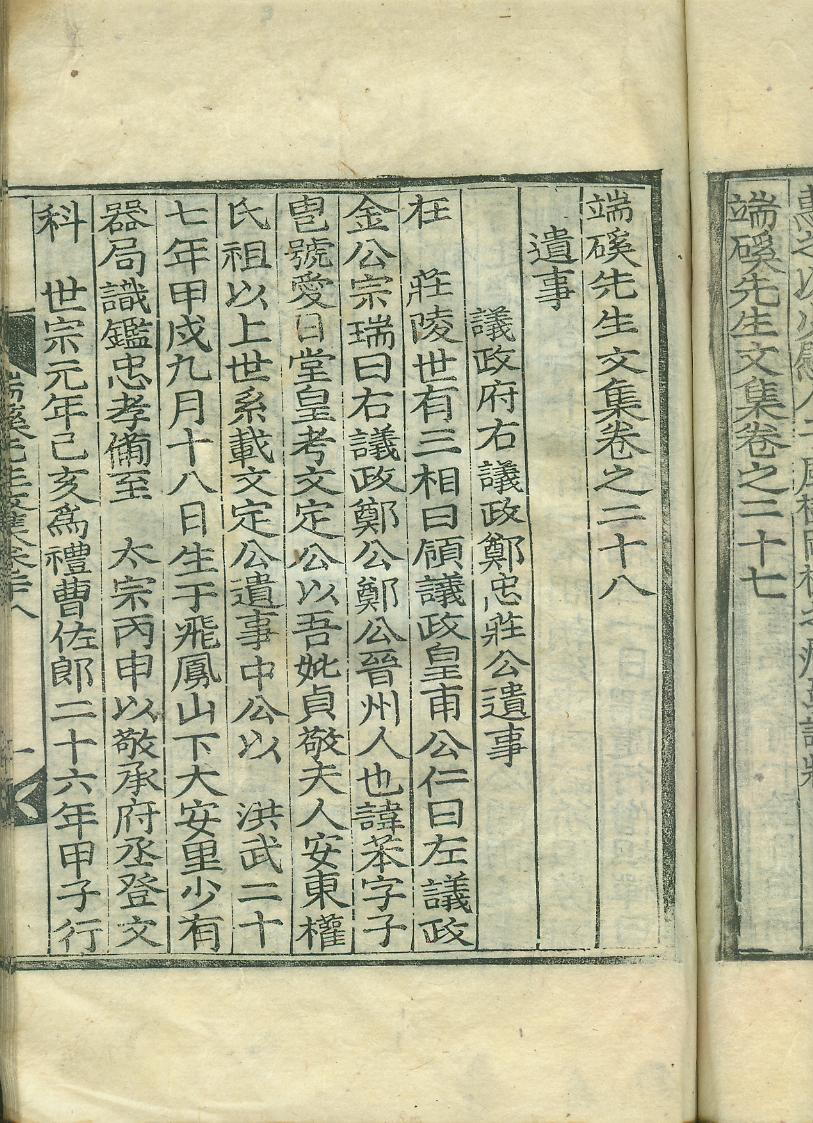 端磎先生文集卷之二十七
端磎先生文集卷之二十八
遺事
議政府右議政鄭忠莊公遺事
在 莊陵世有三相曰領議政皇甫公仁曰左議政
金公宗瑞曰右議政鄭公鄭公晉州人也諱苯字子
㿝號愛日堂皇考文定公以吾妣貞敬夫人安東權
氏祖以上世系載文定公遺事中公以 洪武二十
七年甲戌九月十八日生于飛鳳山下大安里少有
器局識鑑忠孝備至 太宗丙申以敬承府丞登文
科 世宗元年己亥爲禮曹佐郞二十六年甲子行
端磎先生文集卷二十八 一